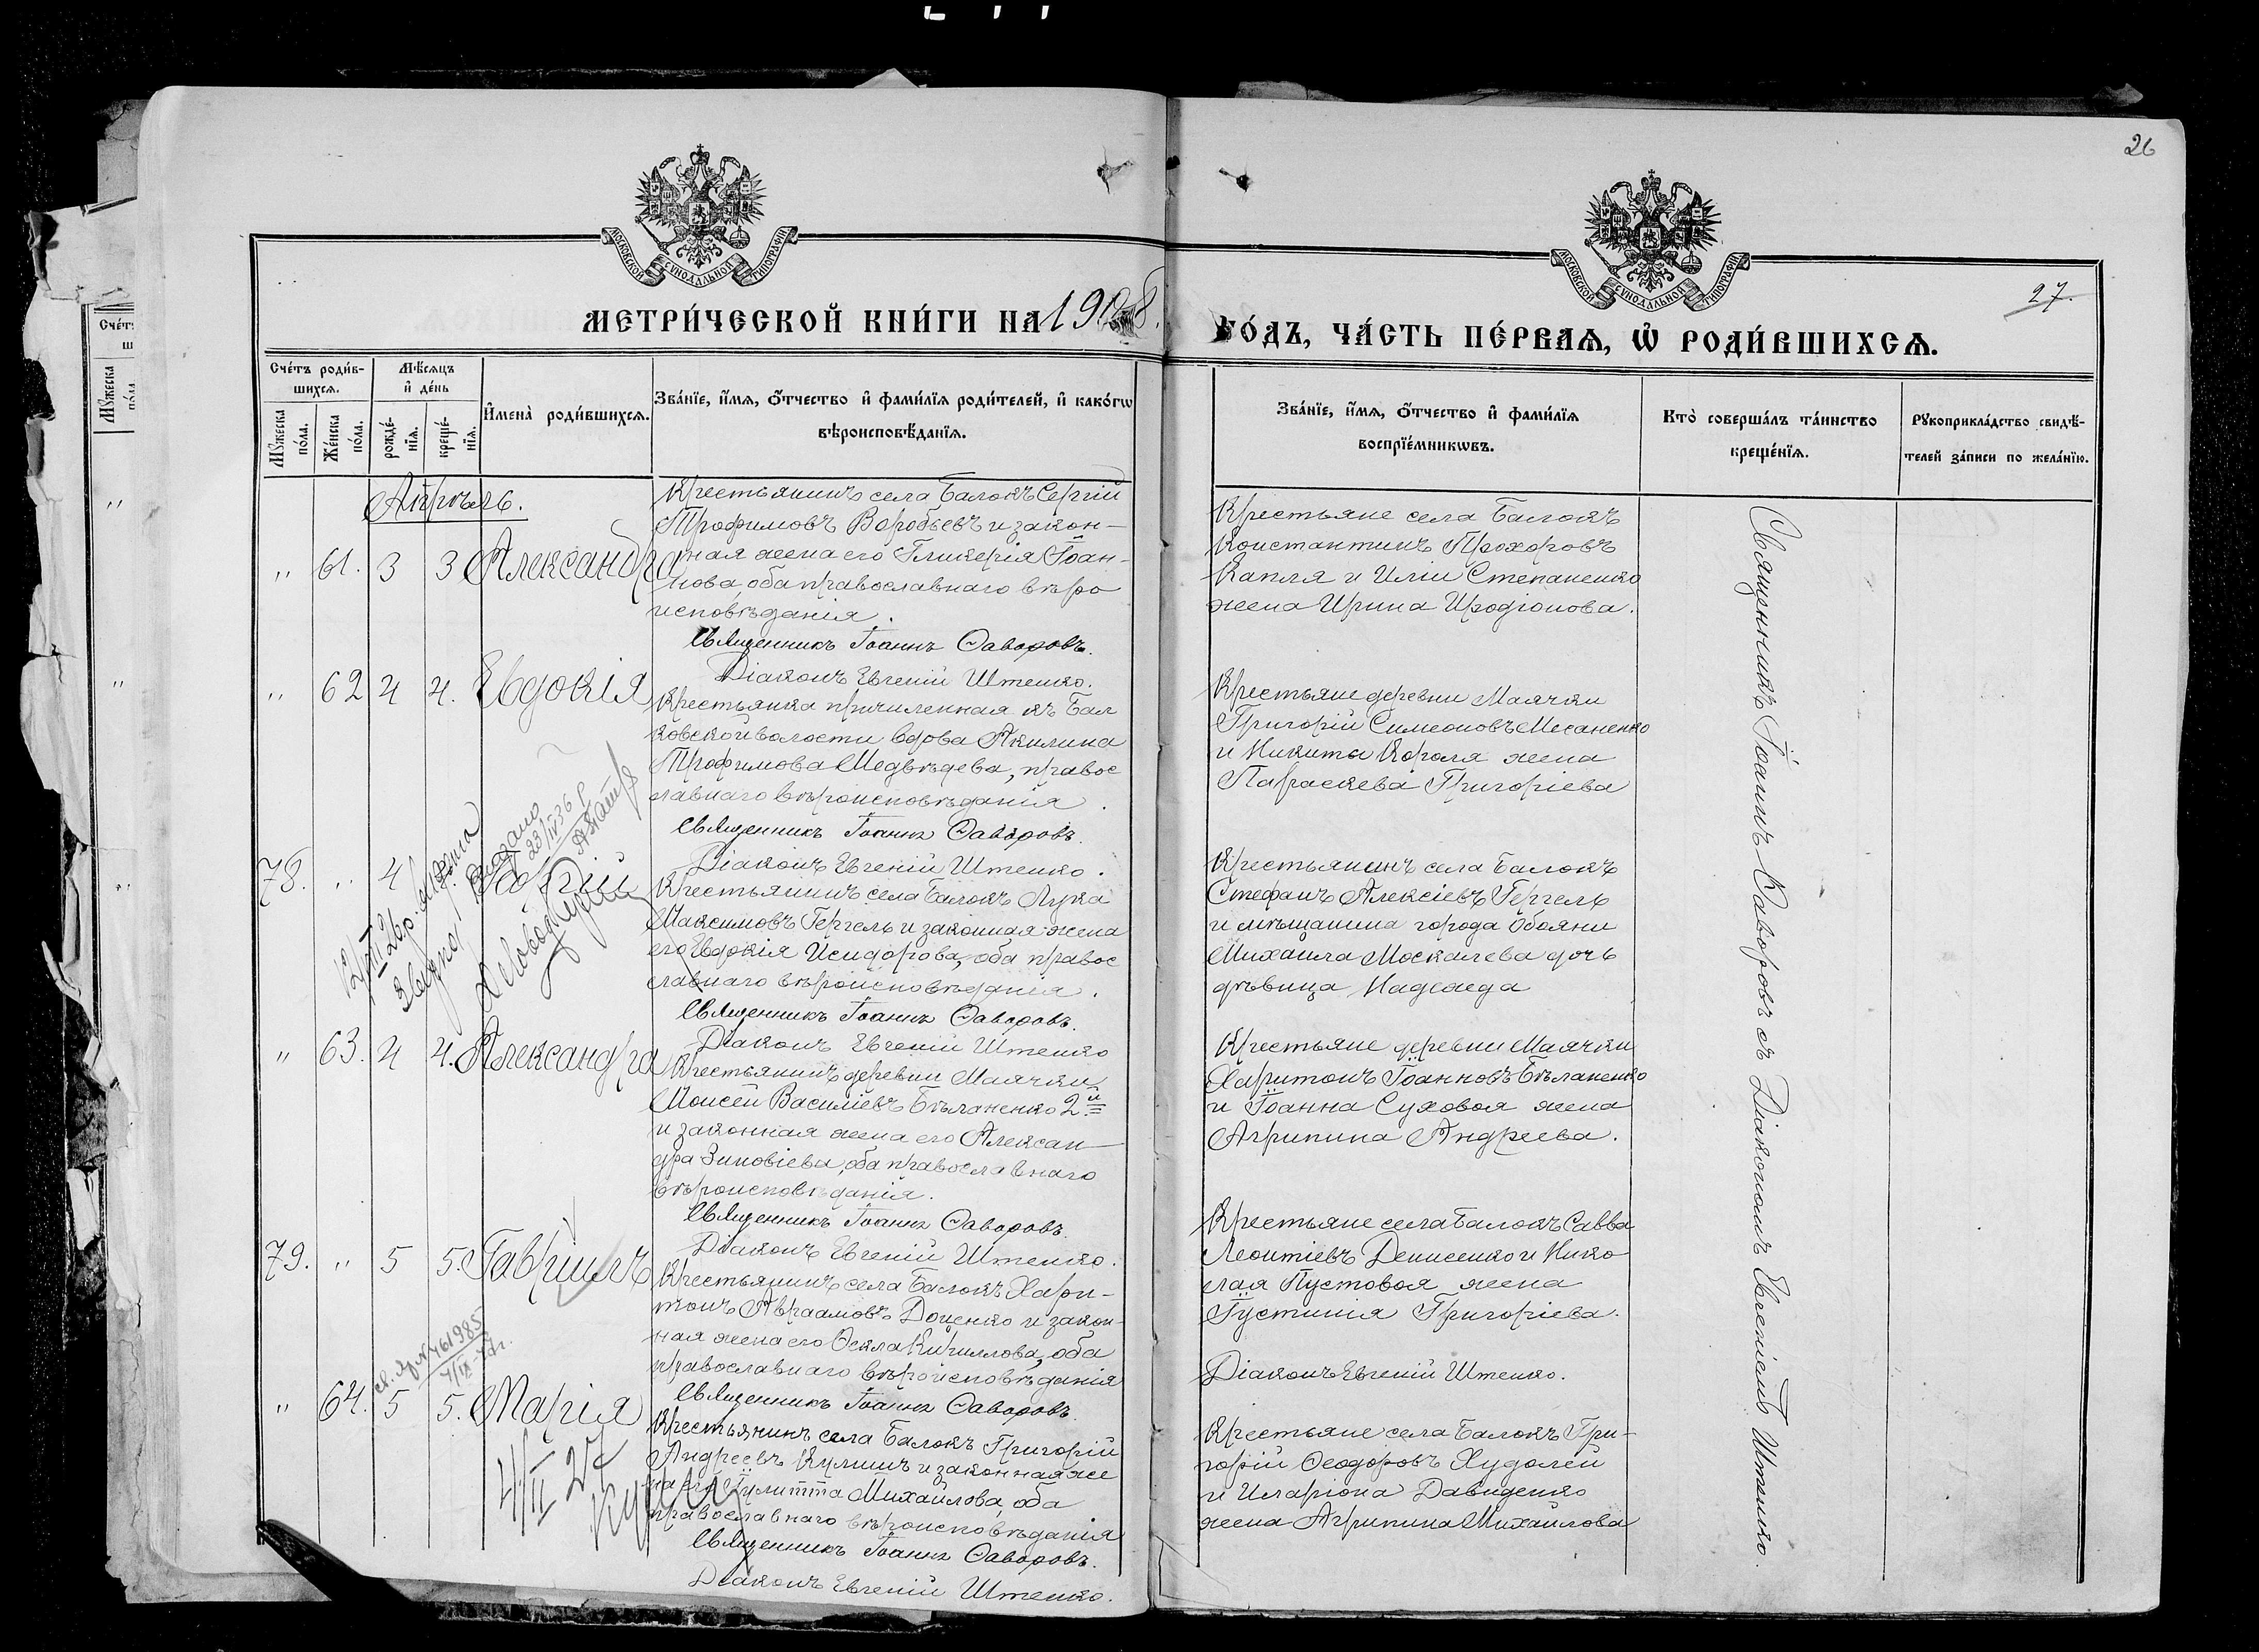 26
МОСКОВСКОЙ СУНОДАЛЬНОЙ ТИПОГРАФІИ
МОСКОВСКОЙ СУНОДАЛЬНОЙ ТИПОГРАФІИ
27.
МЕТРИ́ЧЕСКОЙ КНИ́ГИ НА 1908.
ГО́ДЪ, ЧА́СТЬ ПЕ́РВАѦ, Ѡ҆ РОДИ́ВШИХСѦ.
Сче́тъ роди́в-
шихсѧ.
Мꙋжеска по́ла.
Же́нска по́ла.
Мѣ́сѧцъ
и҆ де́нь
рожде́-нїѧ.
креще́-нїѧ.
И҆мена̀ роди́вшихсѧ.
Зва́нїе, и҆́мѧ, ѻ҆́тчество и҆ фами́лїѧ роди́телей, и҆ како́гѡ
вѣроисповѣ́данїѧ.
Зва́нїе, и҆́мѧ, ѻ҆́тчество и҆ фами́лїѧ
воспрїе́мникѡвъ.
Кто̀ соверша́лъ та́инство
креще́нїѧ.
Рꙋкоприкла́дство свидѣ́-
телей за́писи по жела́нїю.
Апрѣль.
„ 61. 3 3 Александра
Крестьянинъ села Балокъ Сергій
Трофимовъ Воробьевъ и закон-
ная жена его Гликерія Іоан-
нова, оба православнаго вѣро
исповѣданія.
Священникъ Іоаннъ Ѳаворовъ.
Діаконъ Евгеній Штенко.
Крестьяне села Балокъ
Константинъ Прохоровъ
Капля и Иліи Степаненко
жена Ирина Иродіонова.
„ 62 4 4. Евдокія
Крестьянка причисленная къ Бал
ковской волости вдова Акилина
Трофимова Медвѣдева, правос
лавнаго вѣроисповѣданія.
Священникъ Іоаннъ Ѳаворовъ.
Діаконъ Евгеній Штенко.
Крестьяне деревни Маячки
Григорій Симеоновъ Месаненко
и Никиты Короля жена
Параскева Григоріева
78. „ 4
Крестьянинъ села Балокъ Лука
Максимовъ Гергель и законная жена
его Евдокія Исидорова, оба правос
лавнаго вѣроисповѣданія.
Священникъ Іоаннъ Ѳаворовъ.
Діаконъ Евгеній Штенко
Крестьянинъ села Балокъ
Стефанъ Алексіевъ Гергель
и мѣщанина города Обояни
Михаила Москалева дочь
дѣвица Надежда
„ 63. 4 4. Александра
Крестьянинъ деревни Маячки
Моисей Василіевъ Бѣланенко 2й
и законная жена его Алексан-
дра Зиновіева, оба православнаго
вѣроисповѣданія.
Священникъ Іоаннъ Ѳаворовъ.
Діаконъ Евгеній Штенко.
Крестьяне деревни Маячки
Харитонъ Іоанновъ Бѣланенко
и Іоанна Суховоя жена
Агрипина Андреева.
79. „ 5 5. Гавріилъ
Крестьянинъ села Балокъ Хари-
тонъ Авраамовъ Доценко и закон-
ная жена его Ѳекла Кириллова, оба
православнаго вѣроисповѣданія
Священникъ Іоаннъ Ѳаворовъ.
Крестьяне села Балокъ Савва
Леонтіевъ Денисенко и Нико
лая Пустовоя жена
Іустинія Григоріева.
Діаконъ Евгеній Штенко.
„ 64. 5 5. Марія
Крестьянинъ села Балокъ Григорій
Андреевъ Кулишъ и законная же
на его Іулитта Михайлова, оба
православнаго вѣроисповѣданія
Священникъ Іоаннъ Ѳаворовъ.
Діаконъ Евгеній Штенко.
Крестьяне села Балокъ Гри-
горій Ѳеодоровъ Худолей
и Иларіона Давиденко
жена Агрипина Михайлова
Священникъ Іоаннъ Ѳаворовъ съ Діакономъ Евгеніемъ Штенко.